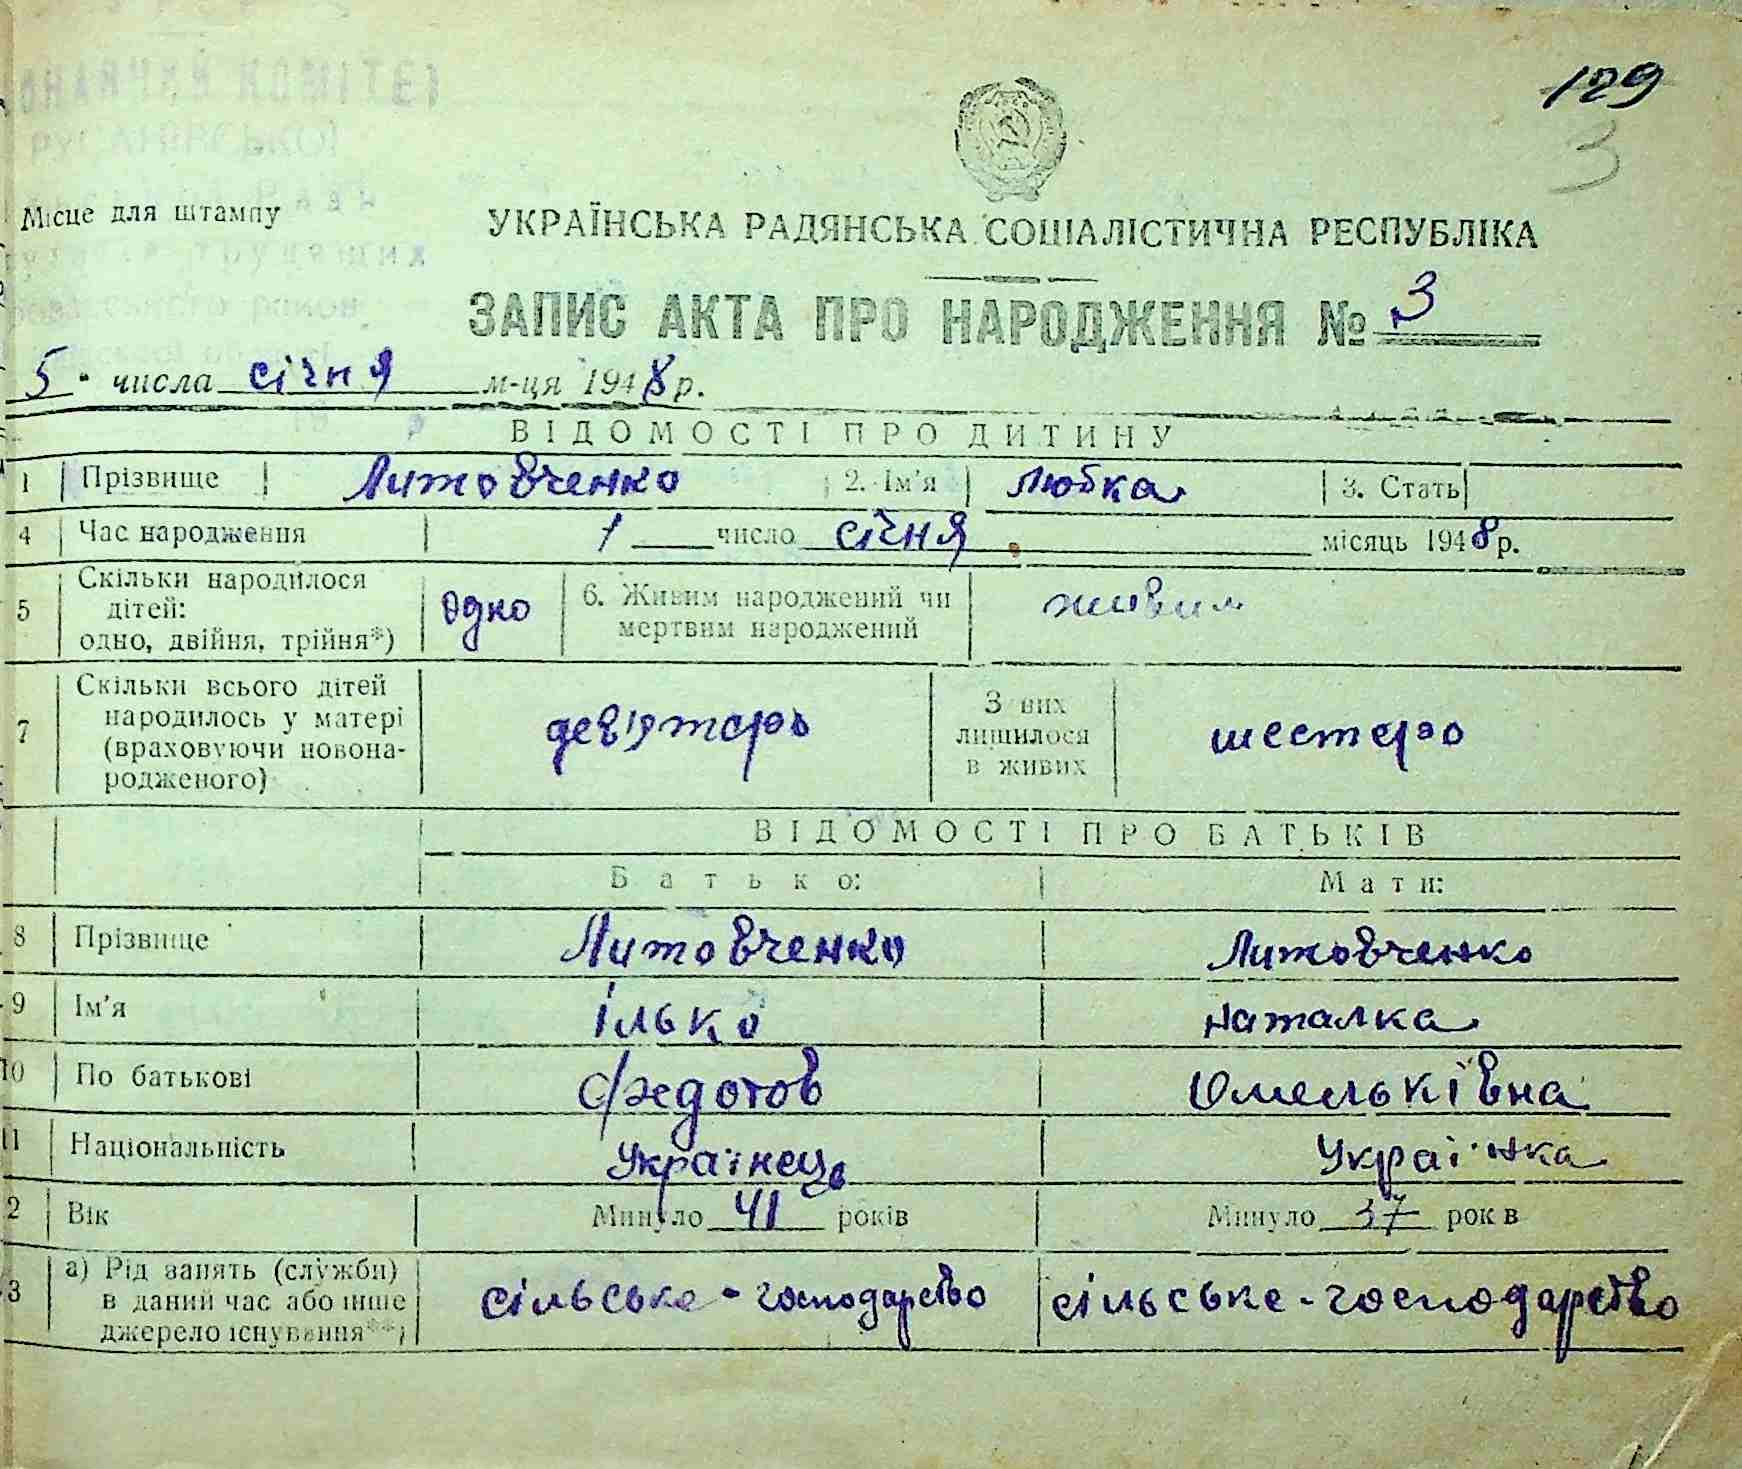 129
3
ОНАВЧИЙ КОМІТЕТ
РУСАНІВСЬКОЇ
Місце для штампу
трудящих
УКРАЇНСЬКА РАДЯНСЬКА СОЦІАЛІСТИЧНА РЕСПУБЛІКА
ЗАПИС АКТА ПРО НАРОДЖЕННЯ № 3
5 числа січня м-ця 1948 р.
ВІДОМОСТІ ПРО ДИТИНУ
1 Прізвище Литовченко 2. Ім'я Любка 3. Стать
4 Час народження 1 число січня місяць 1948 р.
5 Скільки народилося дітей: одно, двійня, трійня*) одно 6. Живим народжений чи мертвим народжений живим
7 Скільки всього дітей народилось у матері (враховуючи новонародженого) дев'ятеро З них лишилося в живих шестеро
ВІДОМОСТІ ПРО БАТЬКІВ
Батько: Мати:
8 Прізвище Литовченко Литовченко
9 Ім'я Ілько Наталка
10 По батькові Федотов Омельківна
11 Національність Українець Українка
2 Вік Минуло 41 років Минуло 37 рок в
3 а) Рід занять (служби) в даний час або інше джерело існування**) сільське-господарство сільське-господарство